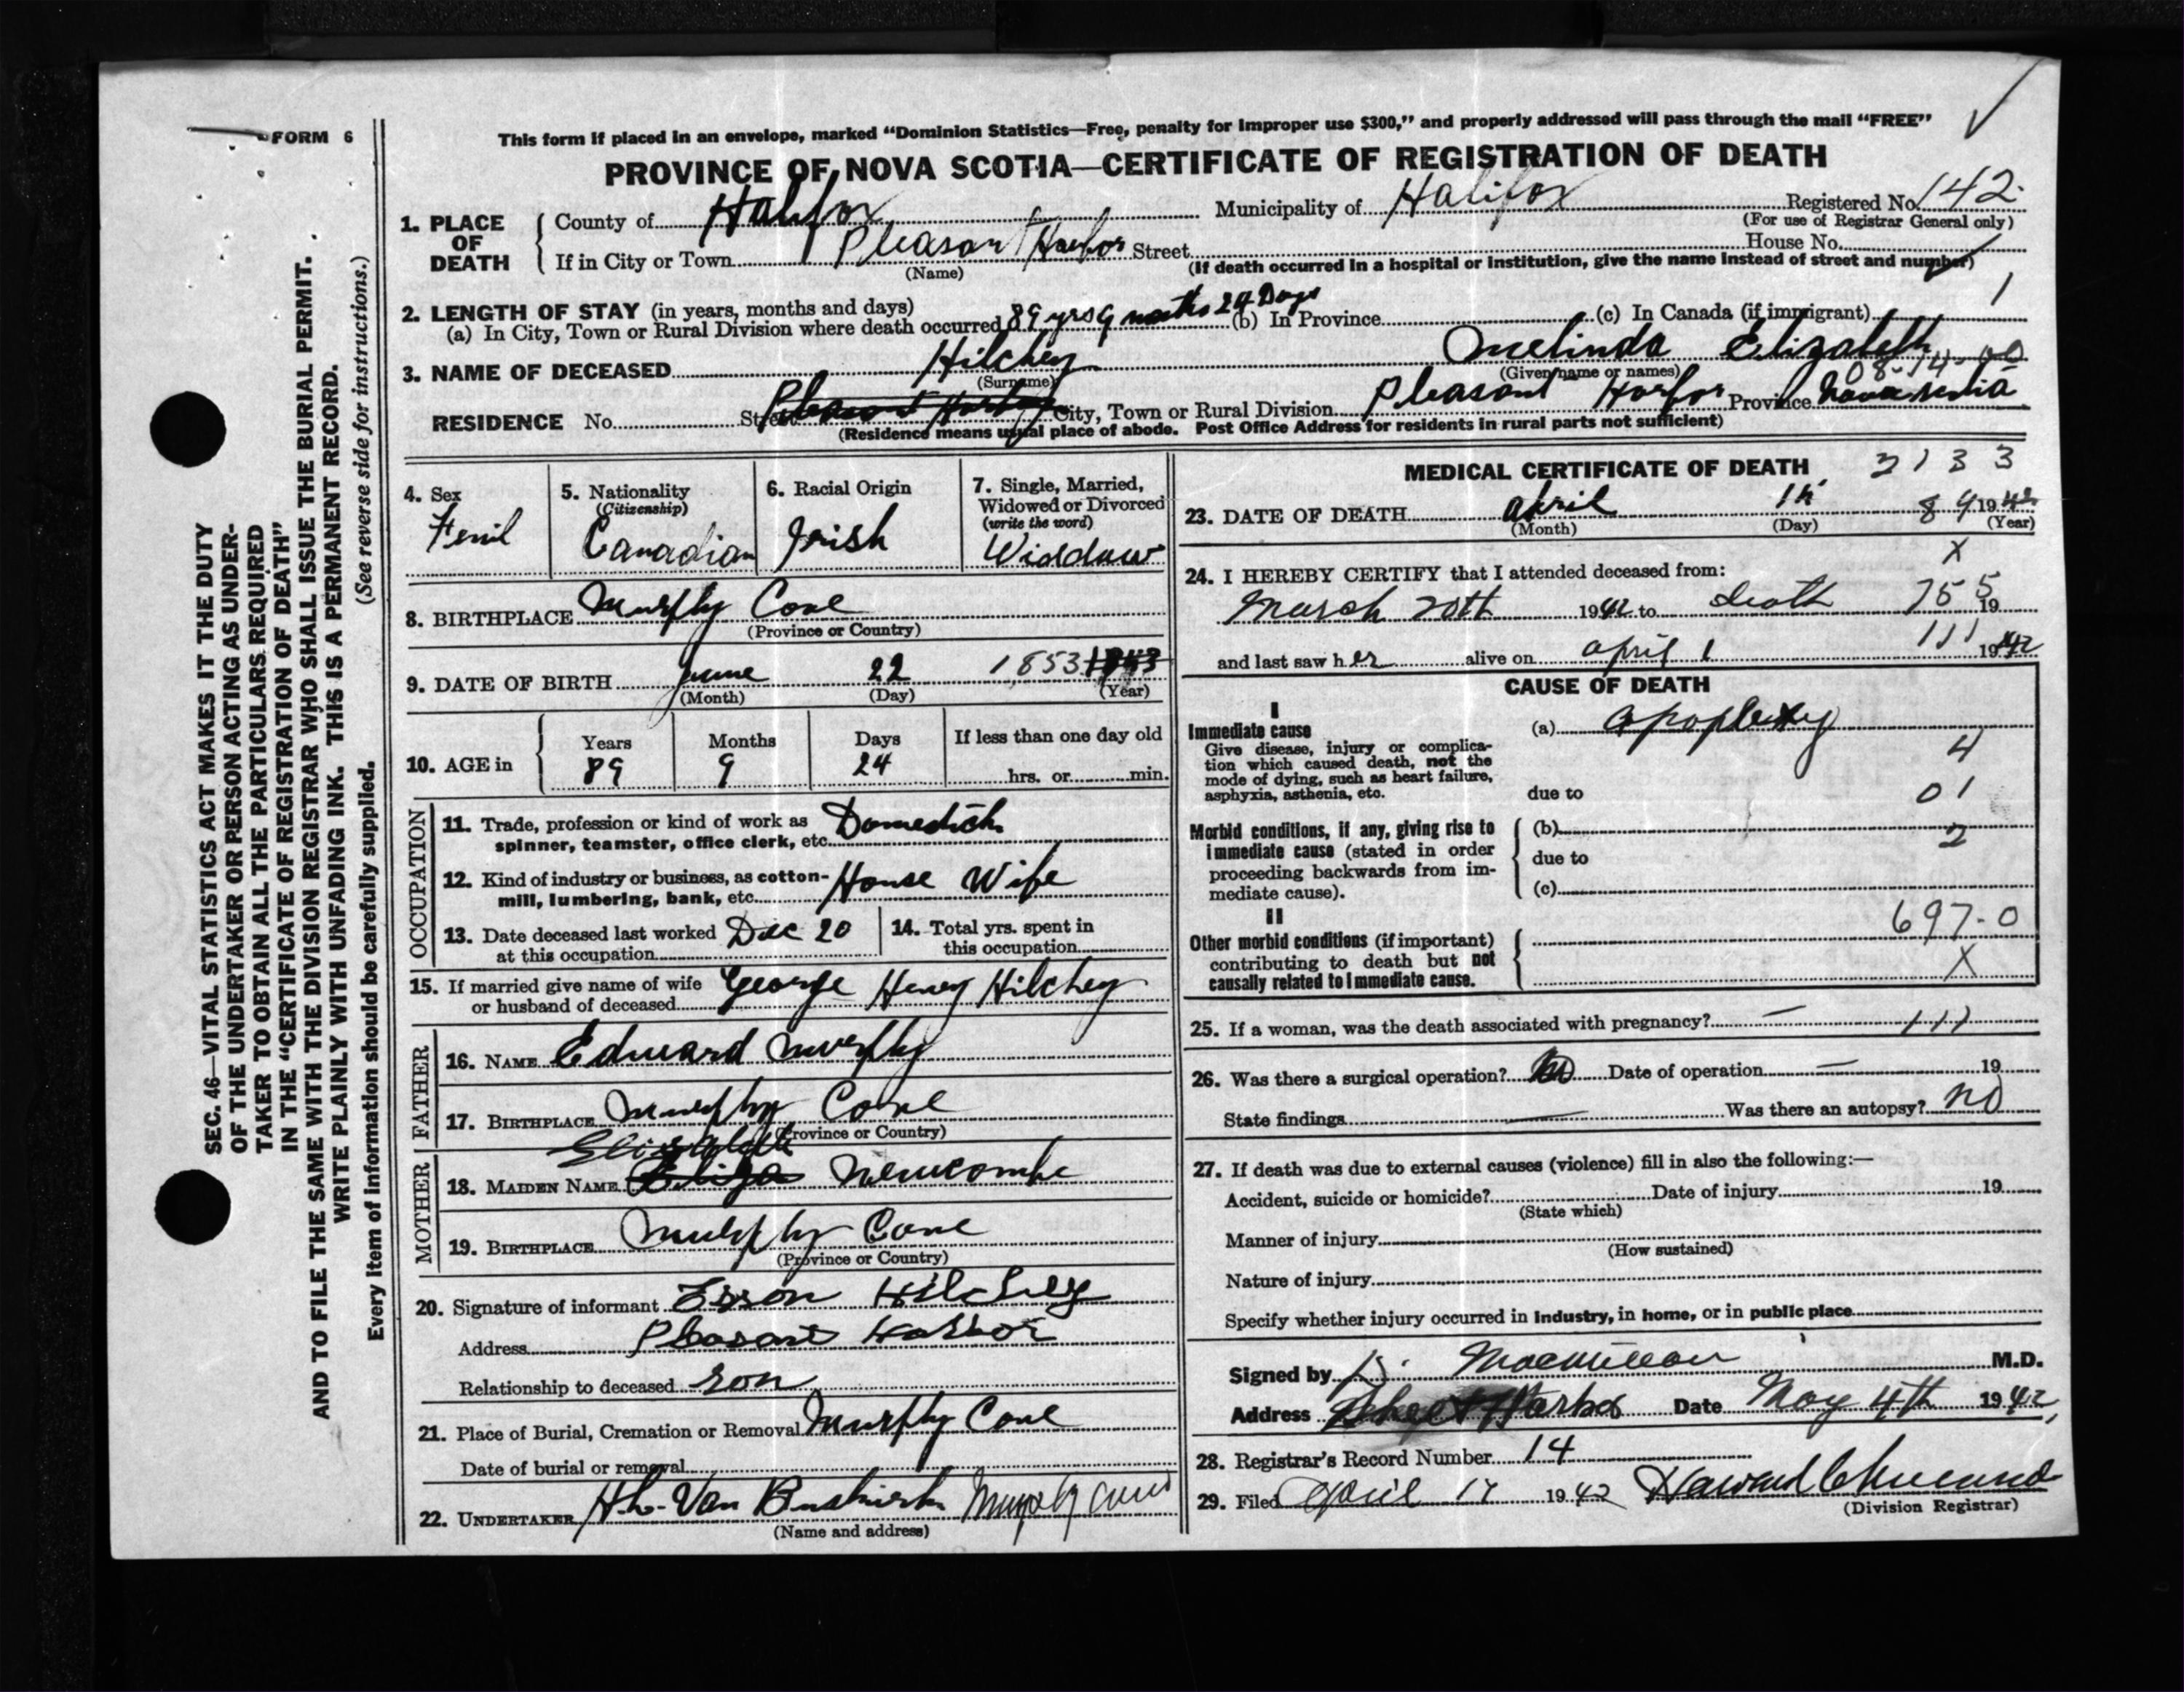 FORM 6
This form if placed in an envelope, marked “Dominion Statistics—Free, penalty for improper use $300,” and properly addressed will pass through the mail “FREE”
PROVINCE OF NOVA SCOTIA—CERTIFICATE OF REGISTRATION OF DEATH
1. PLACE OF DEATH
County of Halifax Municipality of Halifax Registered No. 142
(For use of Registrar General only)
If in City or Town Pleasant Harbor Street House No.
(Name) (If death occurred in a hospital or institution, give the name instead of street and number)
2. LENGTH OF STAY (in years, months and days) 1
(a) In City, Town or Rural Division where death occurred 89 yrs 9 months 24 Days (b) In Province (c) In Canada (if immigrant)
3. NAME OF DECEASED Hilchey Melinda Elizabeth
(Surname) (Given name or names) 08-14-00
RESIDENCE No. Street Pleasant Harbor City, Town or Rural Division Pleasant Harbor Province Nova Scotia
(Residence means usual place of abode. Post Office Address for residents in rural parts not sufficient)
4. Sex
Femil
5. Nationality
(Citizenship)
Canadian
6. Racial Origin
Irish
7. Single, Married,
Widowed or Divorced
(write the word)
Widdow
8. BIRTHPLACE Murphy Cove
(Province or Country)
9. DATE OF BIRTH June 22 1853
(Month) (Day) (Year)
10. AGE in
Years Months Days If less than one day old
89 9 24 hrs. or min.
OCCUPATION
11. Trade, profession or kind of work as
spinner, teamster, office clerk, etc.
12. Kind of industry or business, as cotton-
mill, lumbering, bank, etc. House Wife
13. Date deceased last worked Dec 20
at this occupation
14. Total yrs. spent in
this occupation
15. If married give name of wife
or husband of deceased George Henry Hilchey
FATHER
16. NAME Edward Murphy
17. BIRTHPLACE Murphy Cove
(Province or Country)
MOTHER
Elizabeth
18. MAIDEN NAME Eliza Newcombe
19. BIRTHPLACE Murphy Cove
(Province or Country)
20. Signature of informant Esson Hilchey
Address Pleasant Harbor
Relationship to deceased son
21. Place of Burial, Cremation or Removal Murphy Cove
Date of burial or removal
22. UNDERTAKER Van Buskirk Murphy Cove
(Name and address)
MEDICAL CERTIFICATE OF DEATH 2133
23. DATE OF DEATH April 84 1942
(Month) (Day) (Year)
X
24. I HEREBY CERTIFY that I attended deceased from:
March 20th 1942 to death 19 755
and last saw her alive on April 1 1942 111
CAUSE OF DEATH
I
Immediate cause
(a) apoplexy
Give disease, injury or complica-
tion which caused death, not the
mode of dying, such as heart failure,
asphyxia, asthenia, etc.
4
due to 01
Morbid conditions, if any, giving rise to
immediate cause (stated in order
proceeding backwards from im-
mediate cause).
(b) 2
due to
(c)
II
697-0
Other morbid conditions (if important)
contributing to death but not
causally related to immediate cause.
X
25. If a woman, was the death associated with pregnancy? — 111
26. Was there a surgical operation? No Date of operation — 19
State findings — Was there an autopsy? No
27. If death was due to external causes (violence) fill in also the following:—
Accident, suicide or homicide? Date of injury 19
(State which)
Manner of injury
(How sustained)
Nature of injury
Specify whether injury occurred in industry, in home, or in public place
Signed by MacMillan M.D.
Address Sheet Harbor Date May 4th 1942
28. Registrar's Record Number 14
29. Filed April 17 1942 Howard
(Division Registrar)
SEC. 46—VITAL STATISTICS ACT MAKES IT THE DUTY
OF THE UNDERTAKER OR PERSON ACTING AS UNDER-
TAKER TO OBTAIN ALL THE PARTICULARS REQUIRED
IN THE “CERTIFICATE OF REGISTRATION OF DEATH”
AND TO FILE THE SAME WITH THE DIVISION REGISTRAR WHO SHALL ISSUE THE BURIAL PERMIT.
WRITE PLAINLY WITH UNFADING INK. THIS IS A PERMANENT RECORD.
(See reverse side for instructions.)
Every item of information should be carefully supplied.